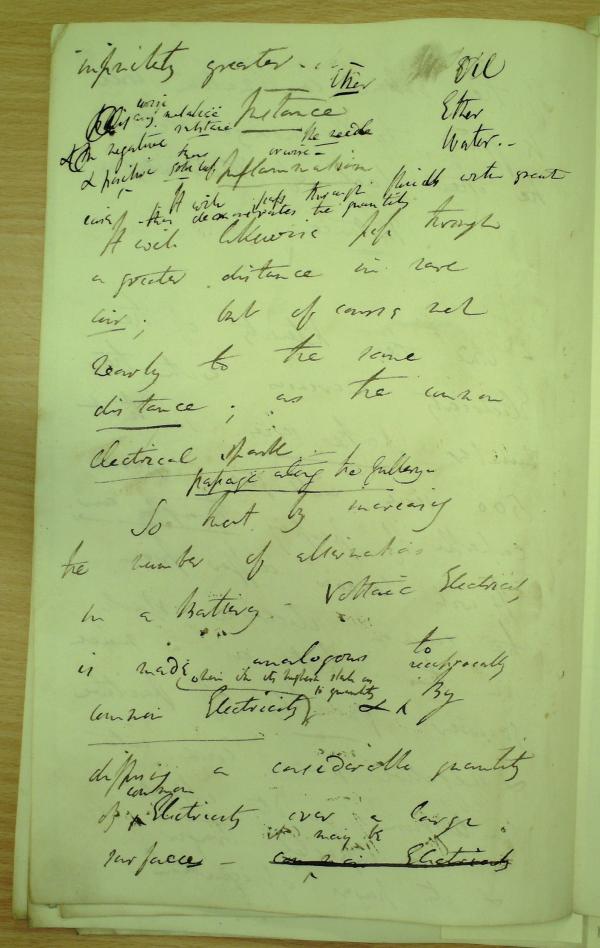 infinitely greater.
Ether Oil
Instance Ether
worse
any metallic
substance Water.-
& the negative the needle
& positive than gold leaf or wire - Inflammation
It will pass through fluids with great
ease - this demonstrates the quantity
It will likewise pass through
a greater distance in rare
air; but of course not
nearly to the same
distance; as the common
electrical spark.
passage along the Gallery -
So that by increasing
the number of alternations
in a Battery - Voltaic Electricity
is made analogous to
(when in its highest state as to quantity)
common Electricity & reciprocally By
diffusing a considerable quantity
of common Electricity over a large
surface - it may be
common Electricity